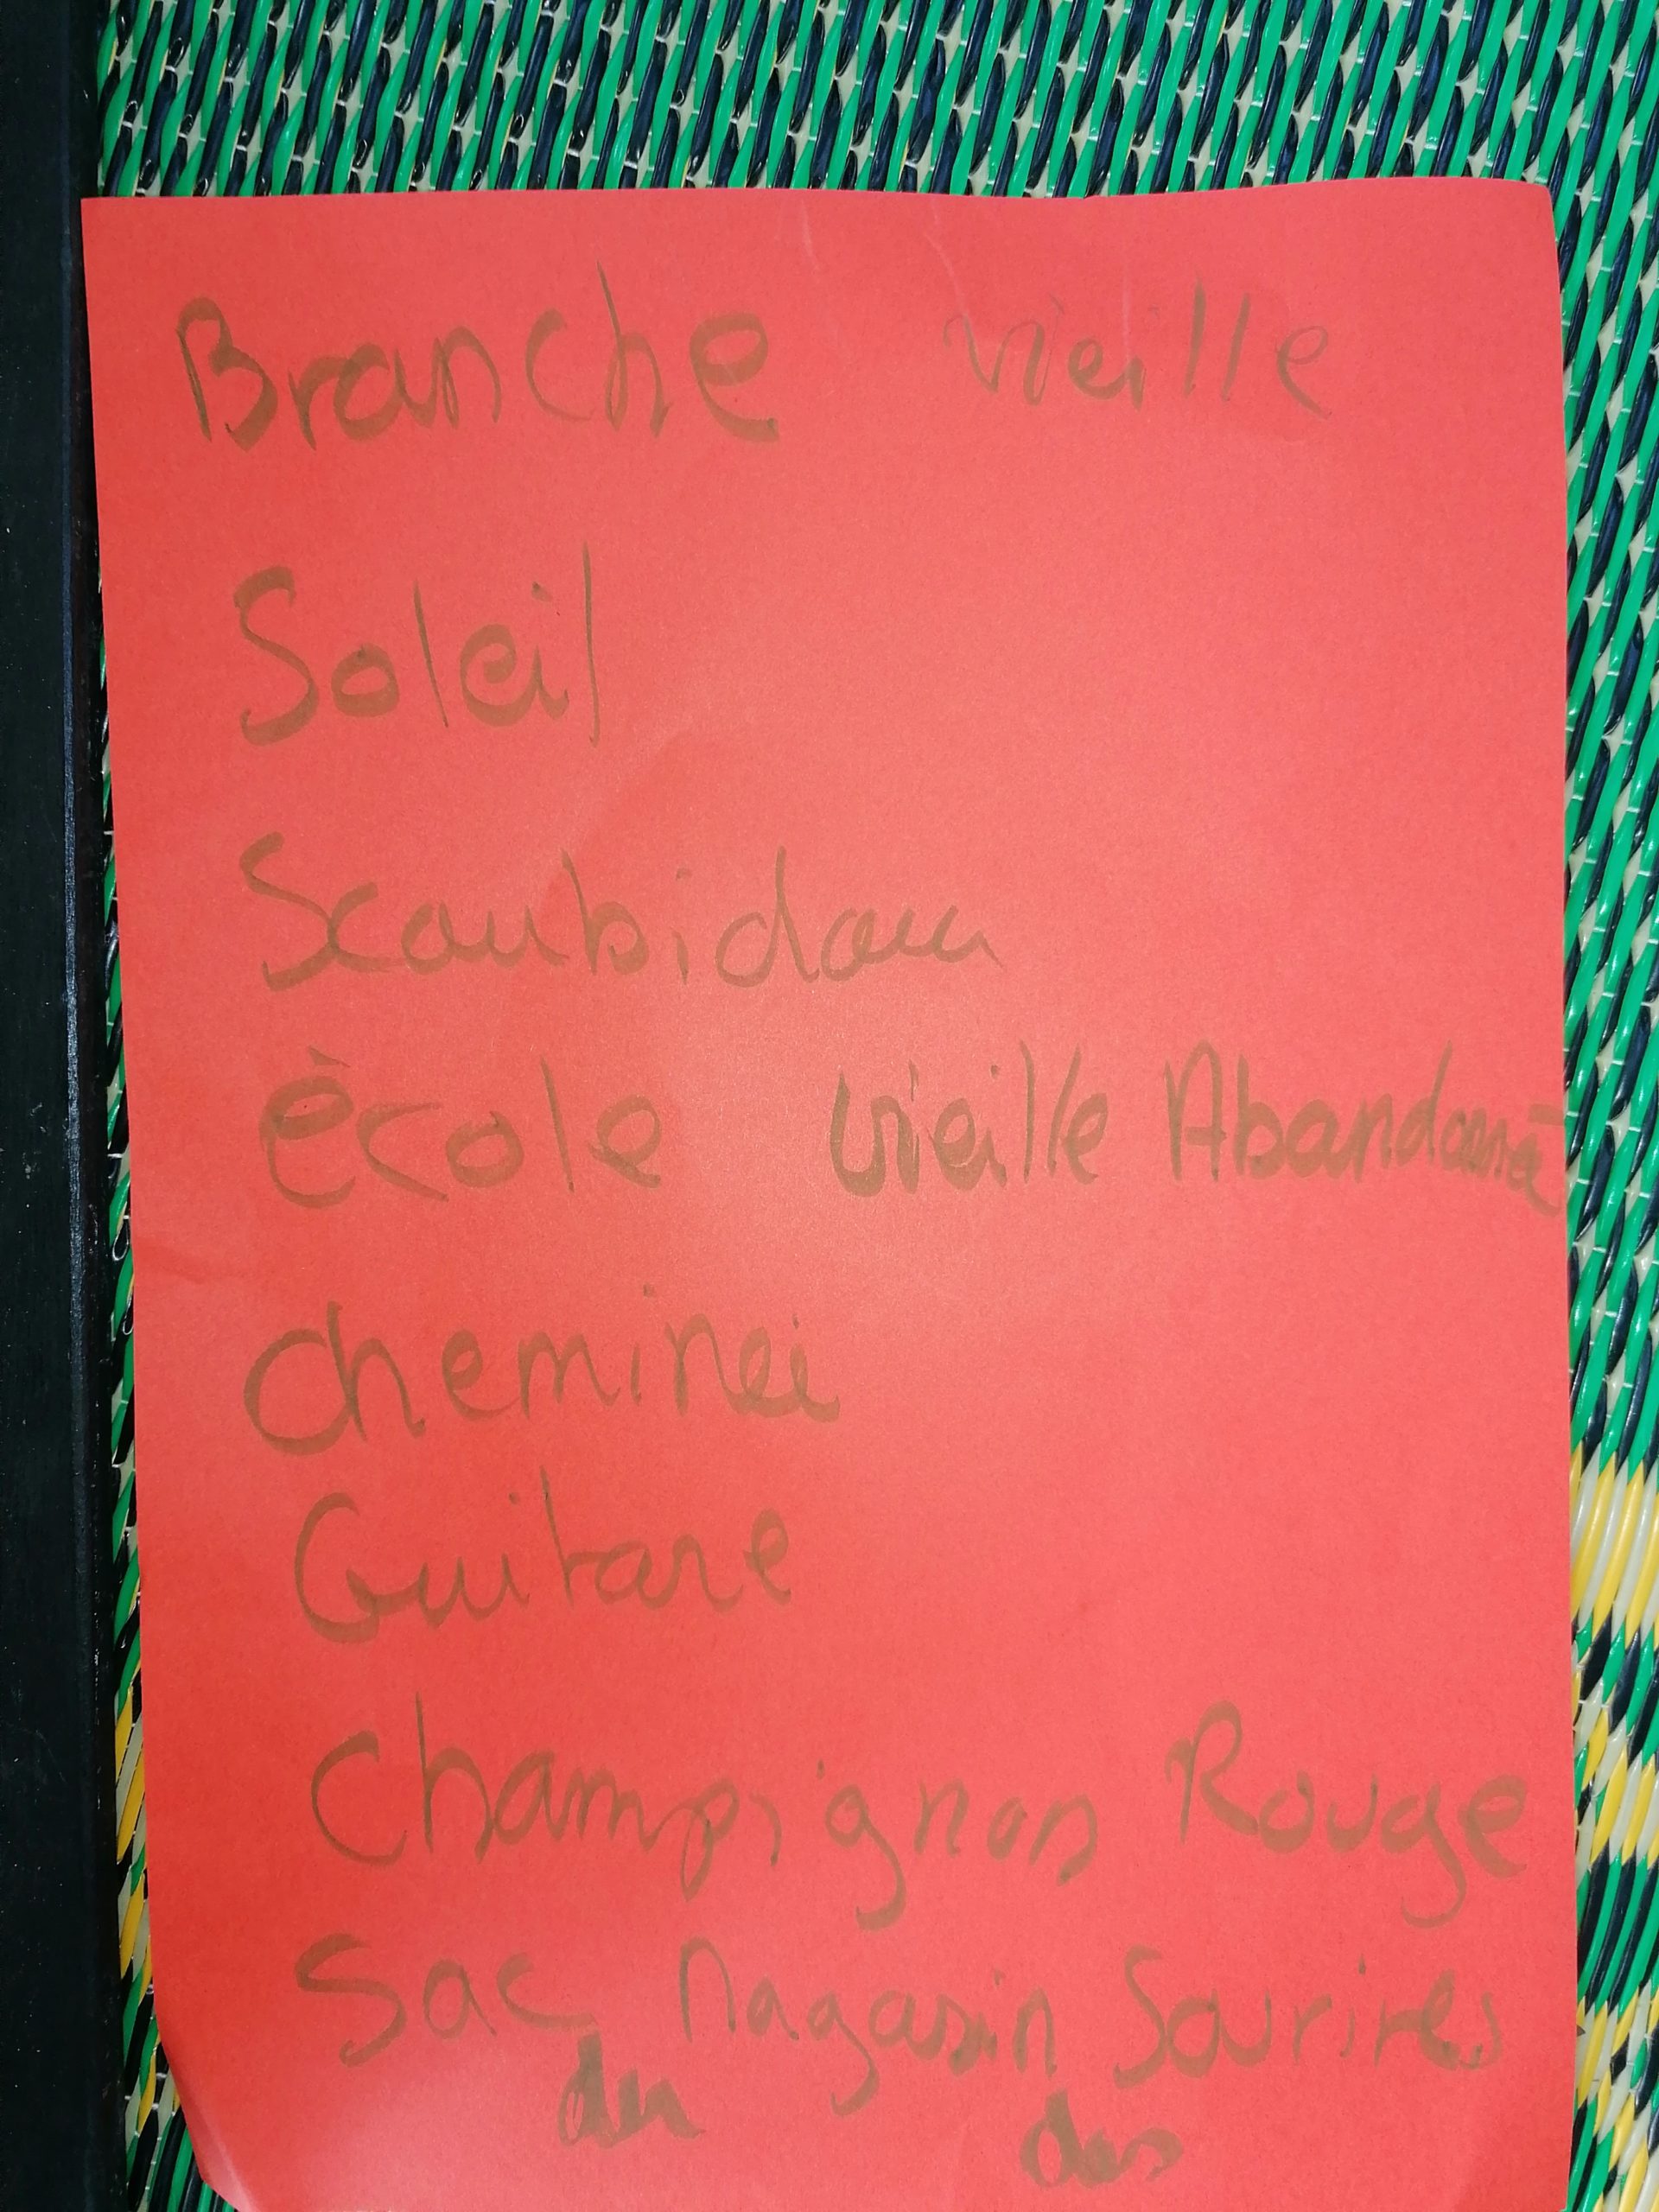 Branche vieille
Soleil
Scoubidou
école vieille Abandonné
cheminei
Guitare
champignon Rouge
Sac magasin Sourires
du des